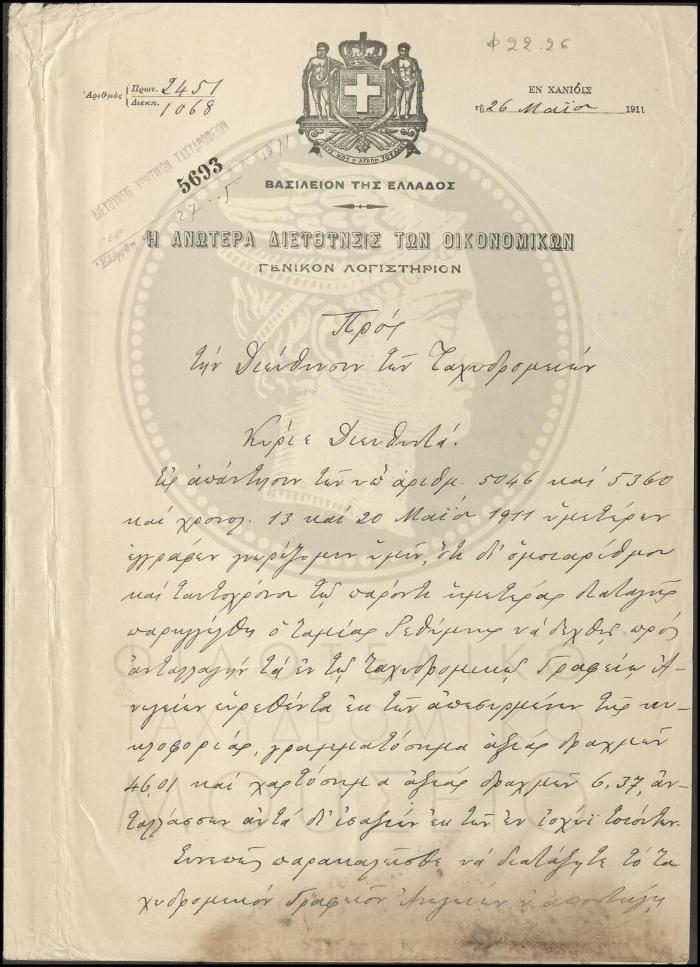 Φ 22.26
Ἀριθμὸς Πρωτ. 2451
Διεκπ. 1068
ΕΝ ΧΑΝΙΟΙΣ
τῇ 26 Μαΐου 1911
ΔΙΕΥΘΥΝΣΙΣ ΚΡΗΤΙΚΩΝ ΤΑΧΥΔΡΟΜΕΙΩΝ
5693
27 5
ΒΑΣΙΛΕΙΟΝ ΤΗΣ ΕΛΛΑΔΟΣ
Η ΑΝΩΤΕΡΑ ΔΙΕΥΘΥΝΣΙΣ ΤΩΝ ΟΙΚΟΝΟΜΙΚΩΝ
ΓΕΝΙΚΟΝ ΛΟΓΙΣΤΗΡΙΟΝ
Πρός
τὴν Διεύθυνσιν τῶν Ταχυδρομείων
Κύριε Διευθυντά.
Εἰς ἀπάντησιν τῶν ὑπ' ἀριθμ. 5046 καὶ 5360
καὶ χρονολ. 13 καὶ 20 Μαΐου 1911 ὑμετέρων
ἐγγράφων γνωρίζομεν ὑμῖν, ὅτι δι' ὁμοιαρίθμου
καὶ ταυτοχρόνου τῇ παρούσῃ ἡμετέρας διαταγῆς
παρηγγέλθη ὁ ταμίας Ρεθύμνης νὰ δεχθῇ πρὸς
ἀνταλλαγὴν τὰ ἐν τῷ Ταχυδρομικῷ Γραφείῳ Ἀ-
νωγείων εὑρεθέντα ἐκ τῶν ἀπεσυρμένων τῆς κυ-
κλοφορίας, γραμματόσημα ἀξίας δραχμῶν
46,01 καὶ χαρτόσημα ἀξίας δραχμῶν 6,37, ἀν-
ταλλάσσων αὐτὰ δι' ἰσαξίων ἐκ τῶν ἐν ἰσχύϊ τοιούτων.
Συνεπῶς παρακαλεῖσθε νὰ διατάξητε τὸ Τα-
χυδρομικὸν Γραφεῖον Ἀνωγείων ν' ἀποστείλῃ
ΦΙΛΟΤΕΛΙΚΟ
ΤΑΧΥΔΡΟΜΙΚΟ
ΜΟΥΣΕΙΟ